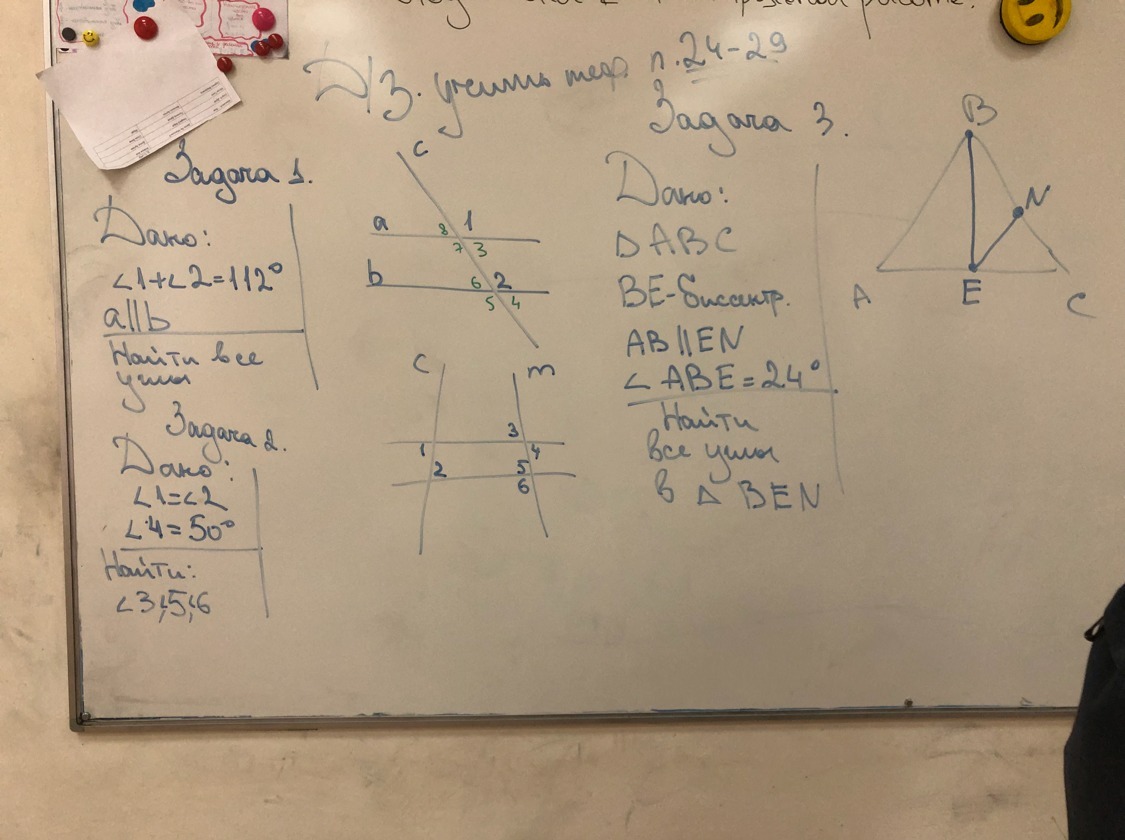 Д/З. учить теор. п. 24-29
Задача 1.
Дано:
∠1+∠2=112°
a||b
Найти все
углы
c
a
8 1
7 3
b
6 2
5 4
Задача 2.
Дано:
∠1=∠2
∠4=50°
Найти:
∠3;5;6
c m
3
1 4
2 5
6
Задача 3.
Дано:
△ABC
BE-биссектр.
AB||EN
∠ABE=24°
Найти
все углы
в △ BEN
B
N
A E C